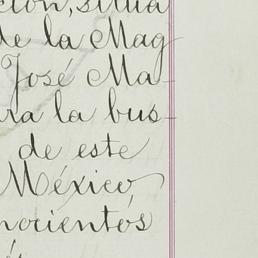 ción, situa
de la Mag
José Ma-
ra la bus-
de este
México,
nocientos